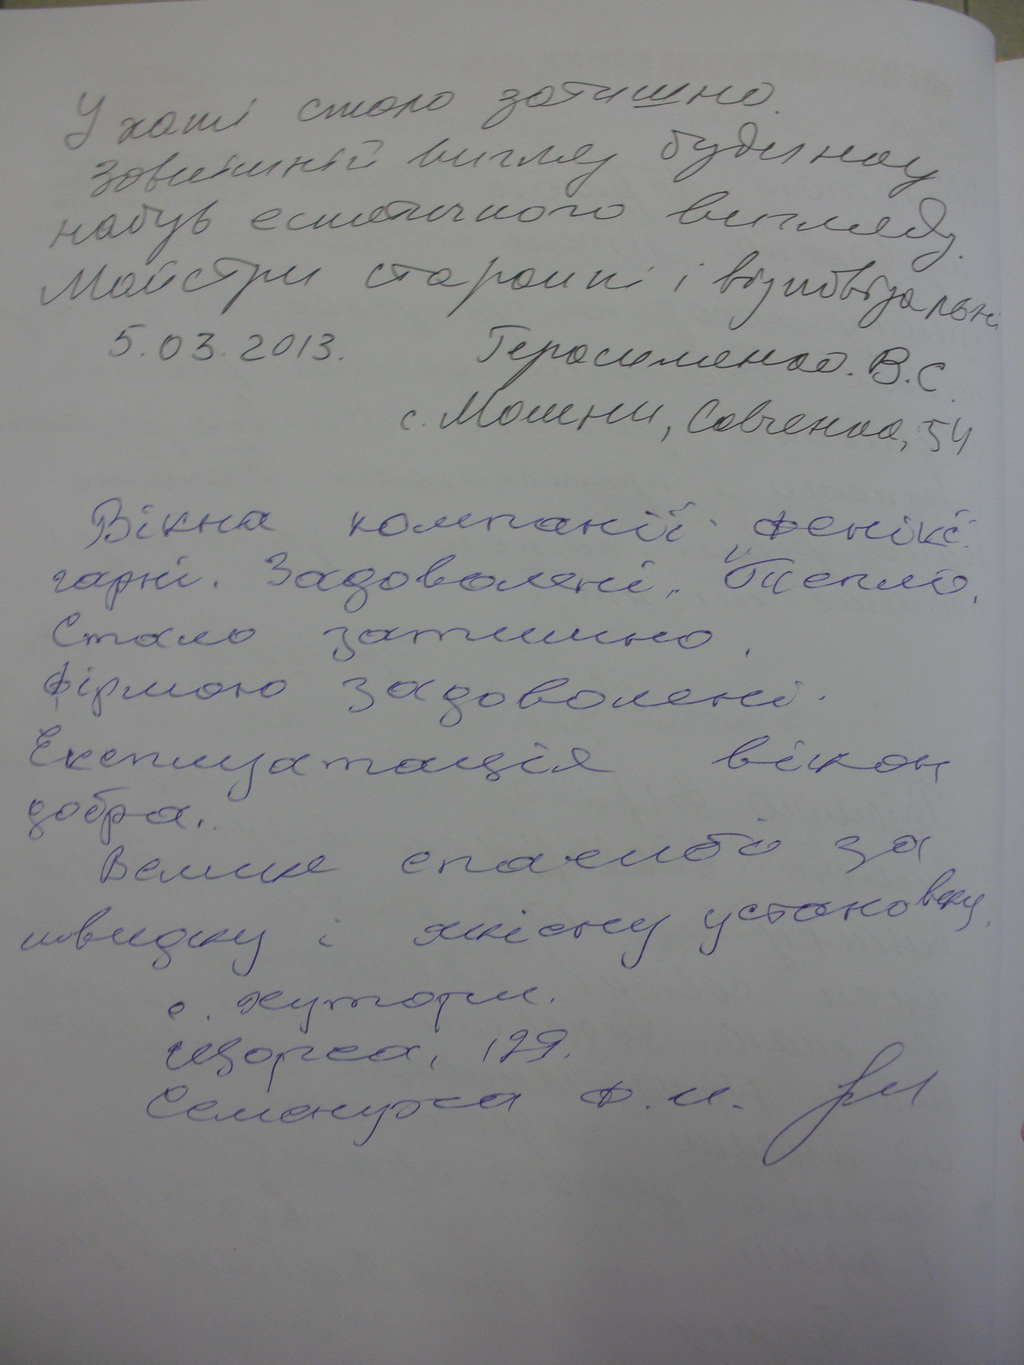 У хаті стало затишно.
Зовнішній вигляд будинку
набув естетичного вигляду.
Майстри старанні і відповідальні
5.03.2013. Герасименко. В.С
с. Мошни, Савченка, 54
Вікна компанії Фенікс
гарні. Задоволені. Тепло.
Стало затишно.
Фірмою задоволені.
Експлуатація вікон
добра.
Велике спасибо за
швидку і якісну установку.
с. Хутори.
Щорса, 129.
Ф. И.